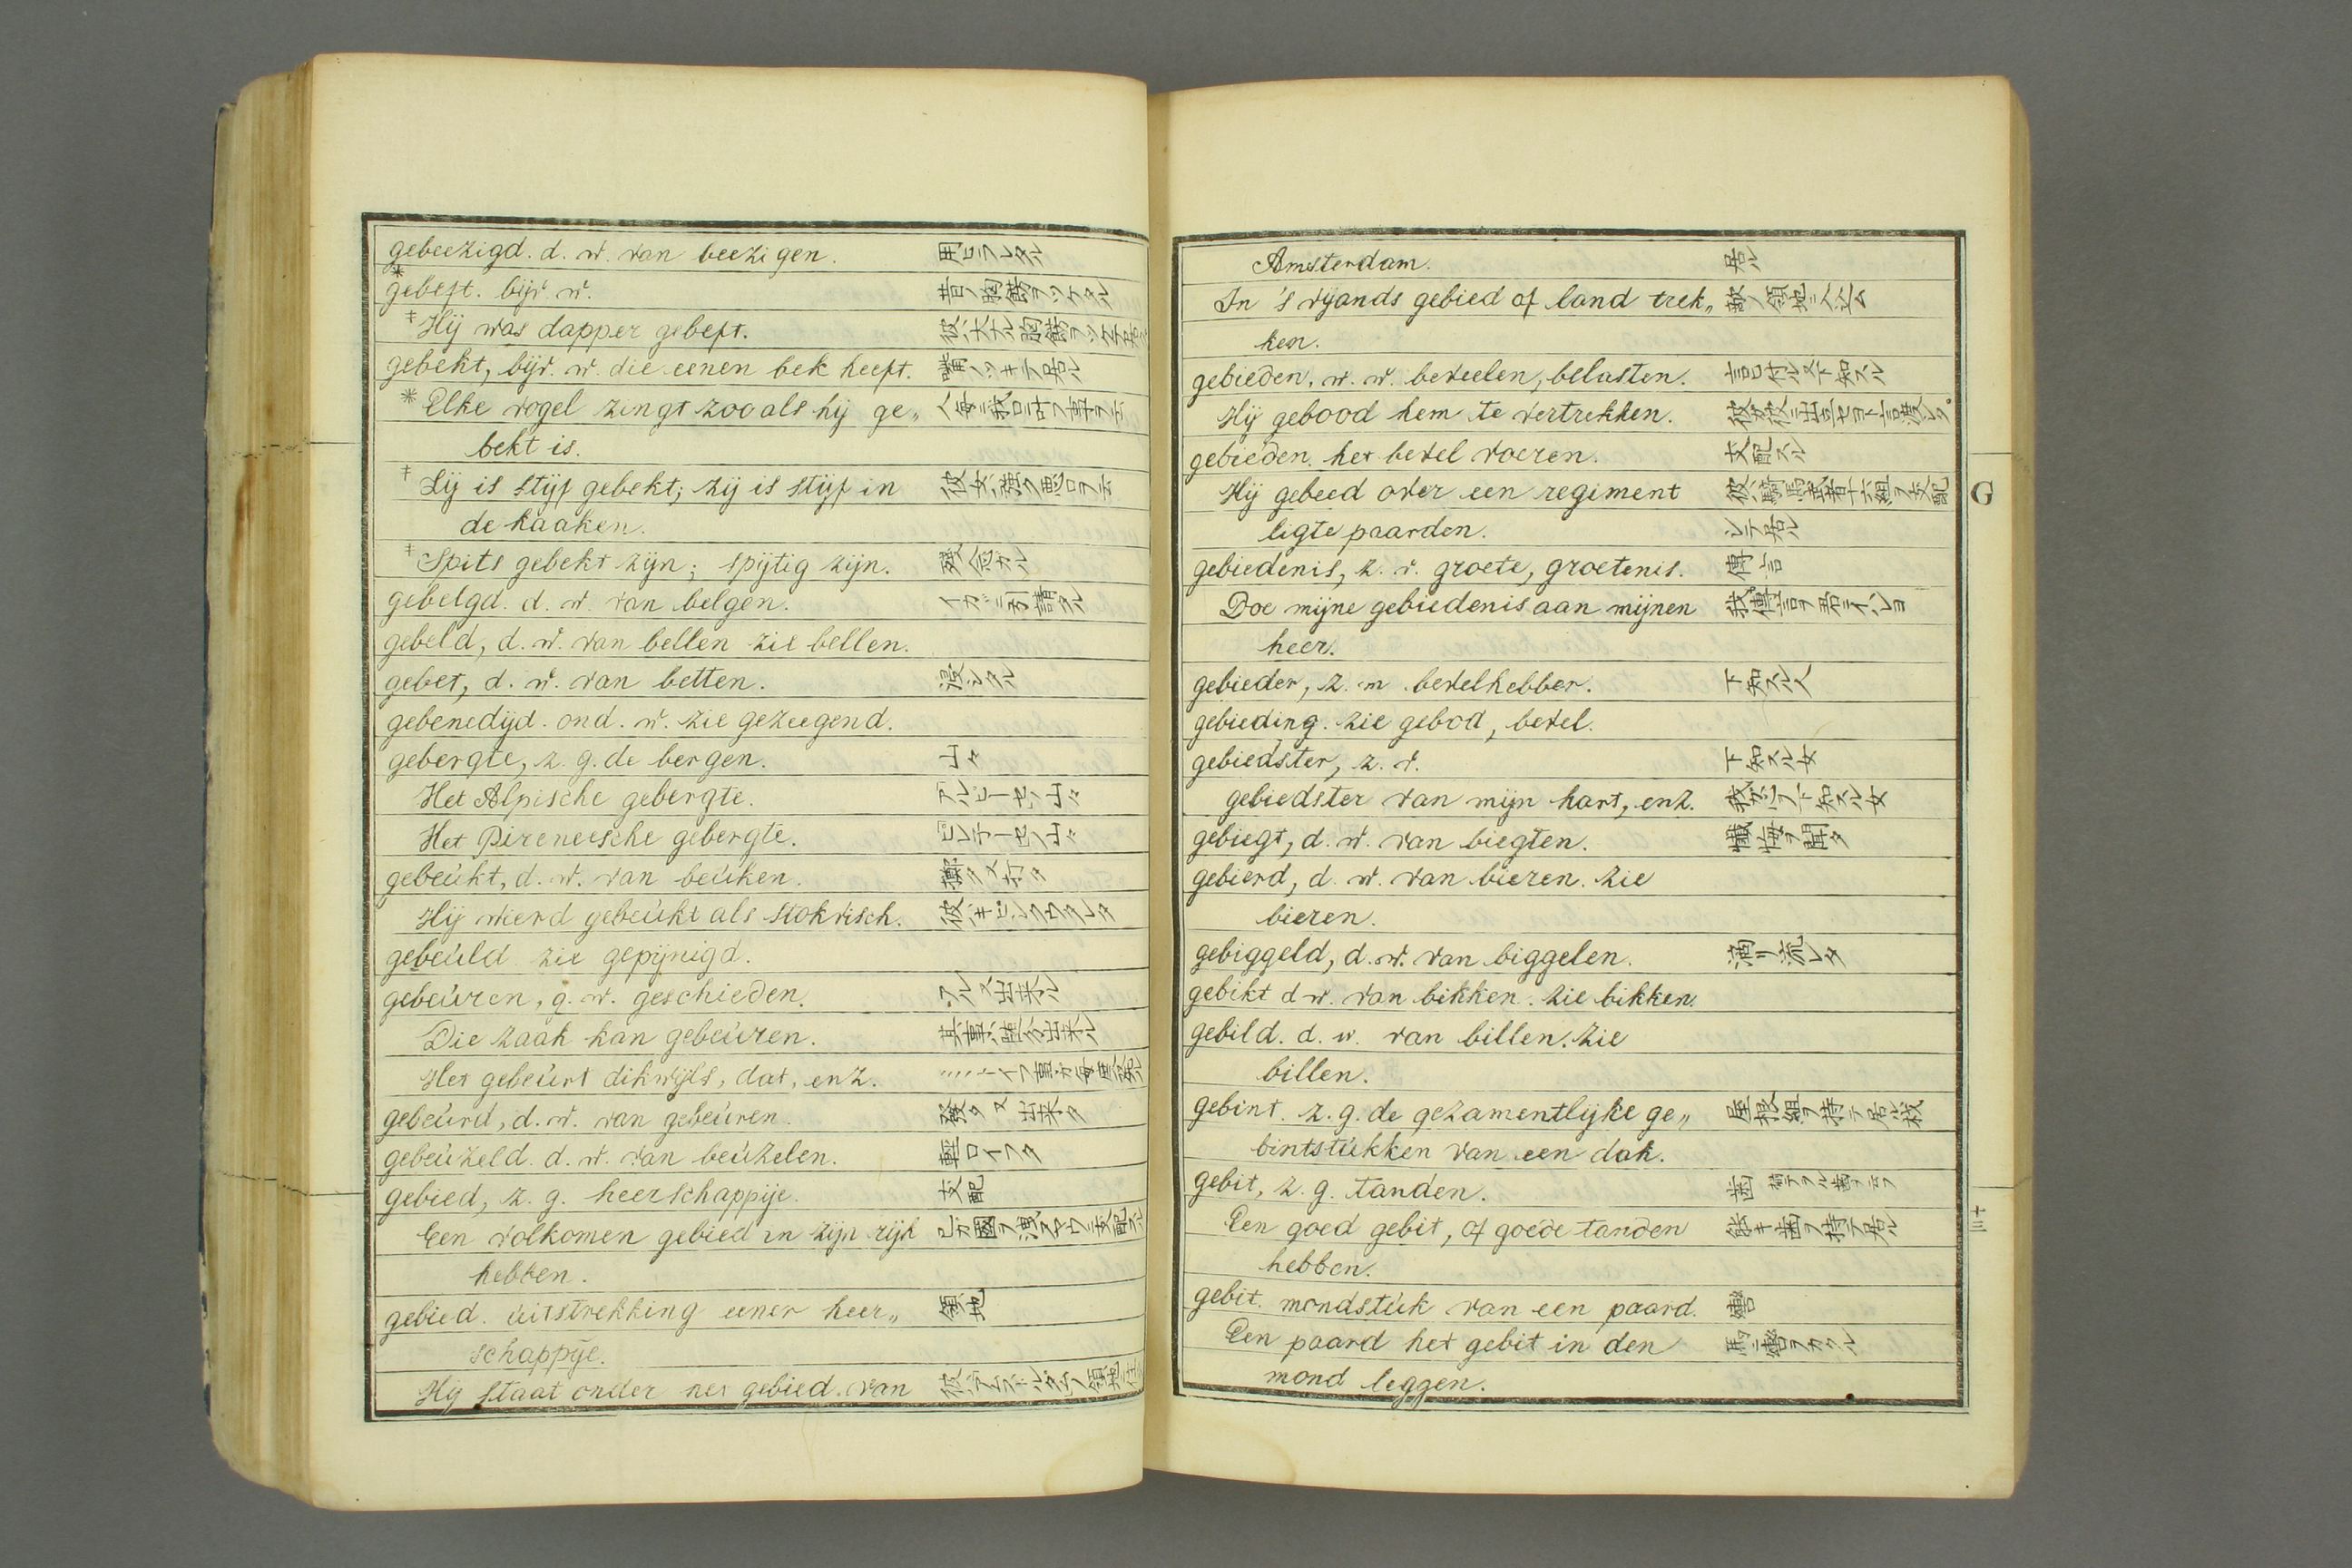 gebeezigd. d. w. van beezigen. 用ヒラレタル
*gebeft. bijv. w. 昔ノ胸飾ヲツケタル
‡Hij was dapper gebeft. 彼ハ大ナル胸飾ヲツケテ居ル
gebekt, bijv. w. die eenen bek heeft. 觜ノツキテ居ル
*Elke vogel zingt zoo als hij ge„
bekt is.
‡Zij is stijf gebekt; zij is stijf in 彼女ハ強ク悪口ヲ云
de kaaken.
‡Spits gebekt zijn; spijtig zijn. 残念ガル
gebelgd. d. w. van belgen.
gebeld, d. w. van bellen zie bellen.
gebet, d. w. van betten. 浸シタル
gebenedijd. ond. w. zie gezeegend.
gebergte, z. g. de bergen. 山々
Het Alpische gebergte. アルピーセノ山々
Het Pireneesche gebergte. ピレ子ーセノ山々
gebeúkt, d. w. van beúken.
Hij wierd gebeúkt als stokvisch.
gebeúld zie gepijnigd.
gebeúren, g. w. geschieden. 出来ル
Die zaak kan gebeúren. 其事ハ随分出来ル
Het gebeúrt dikwijls, dat, enz.
gebeúrd, d. w. van gebeúren. 発タ又出来タ
gebeúzeld. d. w. van beúzelen. 軽口イフタ
gebied, z. g. heerschappije. 支配
Een volkomen gebied in zijn rijk
hebben.
gebied. úitstrekking eener heer„ 領地
schappije.
Hij staat onder het gebied van 彼ハアムストルダムノ領地ニ住
Amsterdam. 居ル
In 's vijands gebied of land trek„ 敵ノ領地ニ入込ム
ken.
gebieden, w. w. beveelen, belasten. 言付ル又下知スル
Hij gebood hem te vertrekken. 彼が彼ニ出立セヨト言渡シタ
gebieden. het bevel voeren. 支配スル
Hij gebeed over een regiment 彼ハ騎馬武者十六組ヲ支配
ligte paarden. シテ居ル
gebiedenis, z. v. groete, groetenis. 傳言
Doe mijne gebiedenis aan mijnen
heer.
gebieder, z. m bevelhebber. 下知スル人
gebieding. zie gebod, bevel.
gebiedster, z. v. 下知スル女
gebiedster van mijn hart, enz. 我ガ心ヲ下知スル女
gebiegt, d. w. van biegten. 懺悔ヲ聞タ
gebierd, d. w. van bieren. zie
bieren.
gebiggeld, d. w. van biggelen. 滴リ流レタ
gebikt d w. van bikken. zie bikken.
gebild. d. w. van billen. zie
billen.
gebint. z. g. de gezamentlijke ge„ 屋根組ヲ持テ居ル
bintstúkken van een dak.
gebit, z. g. tanden. 歯
Een goed gebit, of goede tanden 能キ歯ヲ持テ居ル
hebben.
gebit. mondstúk van een paard. 轡
Een paard het gebit in den 馬ニ轡ヲカクル
mond leggen.
G
十三